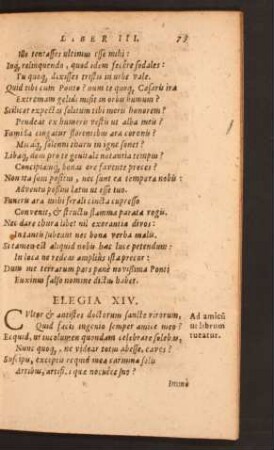 LIBER III. 79
Illo tentasses ultimus esse mihi:
Inq; relinquendo, quod idem fecere sodales:
Tu quoq; dixisses tristis in urbe vale.
Quid tibi cum Ponto? num te quoq; Cæsaris ira
Extremam gelidi misit in orbis humum?
Scilicet expectas solitum tibi moris honorem?
Pendeat ex humeris vestis ut alba meis?
Fumida cingatur florentibus ara coronis?
Micaq; solenni thuris in igne sonet?
Libaq; dem pro te genitale notantia tempus?
Concipiamq; bonas ore favente preces?
Non ita sum positus, nec sunt ea tempora nobis:
Adventu possim lætus ut esse tuo.
Funeris ara mihi ferali cincta cupresso
Convenit, & structis flamma parata rogis.
Nec dare thura libet nil exorantia divos:
In tantis subeunt nec bona verba malis.
Si tamen est aliquid nobis hac luce petendum:
In loca ne redeas amplius ista precor:
Dum me terrarum pars pænè novissima Ponti
Euxinus falso nomine dictus habet.
ELEGIA XIV.
CUltor & antistes doctorum sancte virorum,
Quid facis ingenio semper amice meo?
Ecquid, ut incolumem quondam celebrare solebas,
Nunc quoq, ne videar totus abesse, caves?
Suscipis, exceptis ecquid mea carmina solis
Artibus, artifi- i quæ nocuêre suo?
Ad amicũ
ut librum
tueatur.
Immò